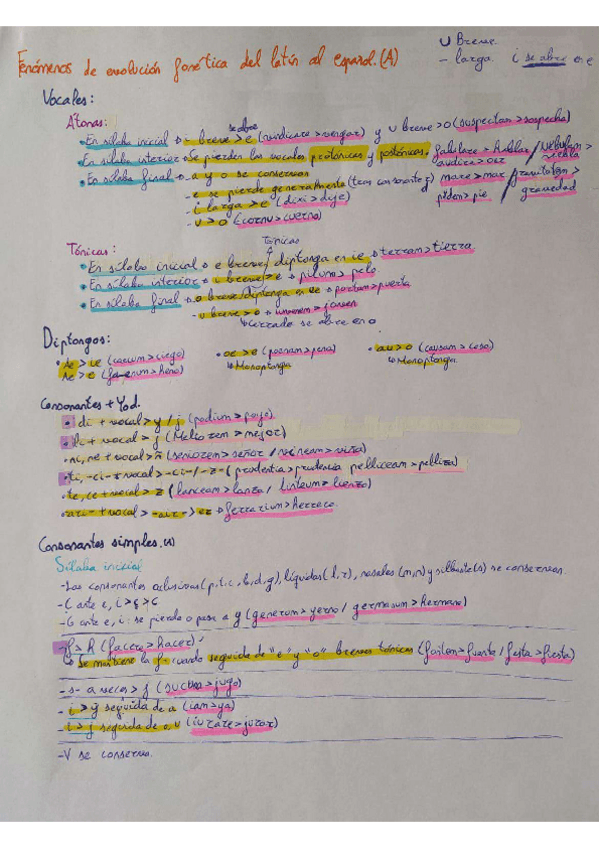 U Breve.
Fenómenos de evolución fonética del latín al español. (A)
- larga. i se abre o. e
Vocales:
Átonas:
se abre
• En sílaba inicial → i breve > e (vindicare > vengar) y u breve > o (suspectam > sospecha)
• En sílaba interior → Se pierden las vocales protónicas y postónicas. fabulare > hablar / Nebulam > niebla
audire > oir
• En sílaba final → - a y o se conservan
- e se pierde generalmente (tras consonante) mare > mar / gravitatem > gravedad
- i larga > e (dixi > dije) pedem > pie
- u > o (cornu > cuerno)
Tónicas:
tónicas
• En sílaba inicial → e breve diptonga en ie → terram > tierra
• En sílaba interior → i breve > e → pilum > pelo
• En sílaba final → o breve diptonga en ue → portam > puerta
- u breve > o → iuvenem > joven
↳ cerrado se abre en o
Diptongos:
• Ae > ie (caecum > ciego) • oe > e (poenam > pena) • au > o (causam > cosa)
Ae > e (faenum > heno) ↳ Monoptonga ↳ Monoptonga.
Consonantes + Yod.
• di + vocal > y / j (podium > poyo)
• li + vocal > j (Meliorem > mejor)
• ni, ne + vocal > ñ (seniorem > señor / vineam > viña)
• ti, -ci- + vocal > -ci- / -z- (prudentia > prudencia pelliceam > pelliza)
• te, ce + vocal > z (lanceam > lanza / linteum > lienzo)
• ari- + vocal > -air- > er → ferrarium > herrero.
Consonantes simples. (A)
Sílaba inicial
- Las consonantes oclusivas (p, t, c, b, d, g), líquidas (l, r), nasales (m, n) y silbante (s) se conservan.
- C ante e, i > ç > c
- G ante e, i: se pierde o pasa a g (generum > yerno / germanum > hermano)
- f > h (facere > hacer)
↳ Se mantiene la f- cuando seguida de "e" y "o" breves tónicas (fontem > fuente / festa > fiesta)
- s- a veces > j (sucum > jugo)
- i > y seguida de a (iam > ya)
- i > j seguida de o, u (iurare > jurar)
- V se conserva.